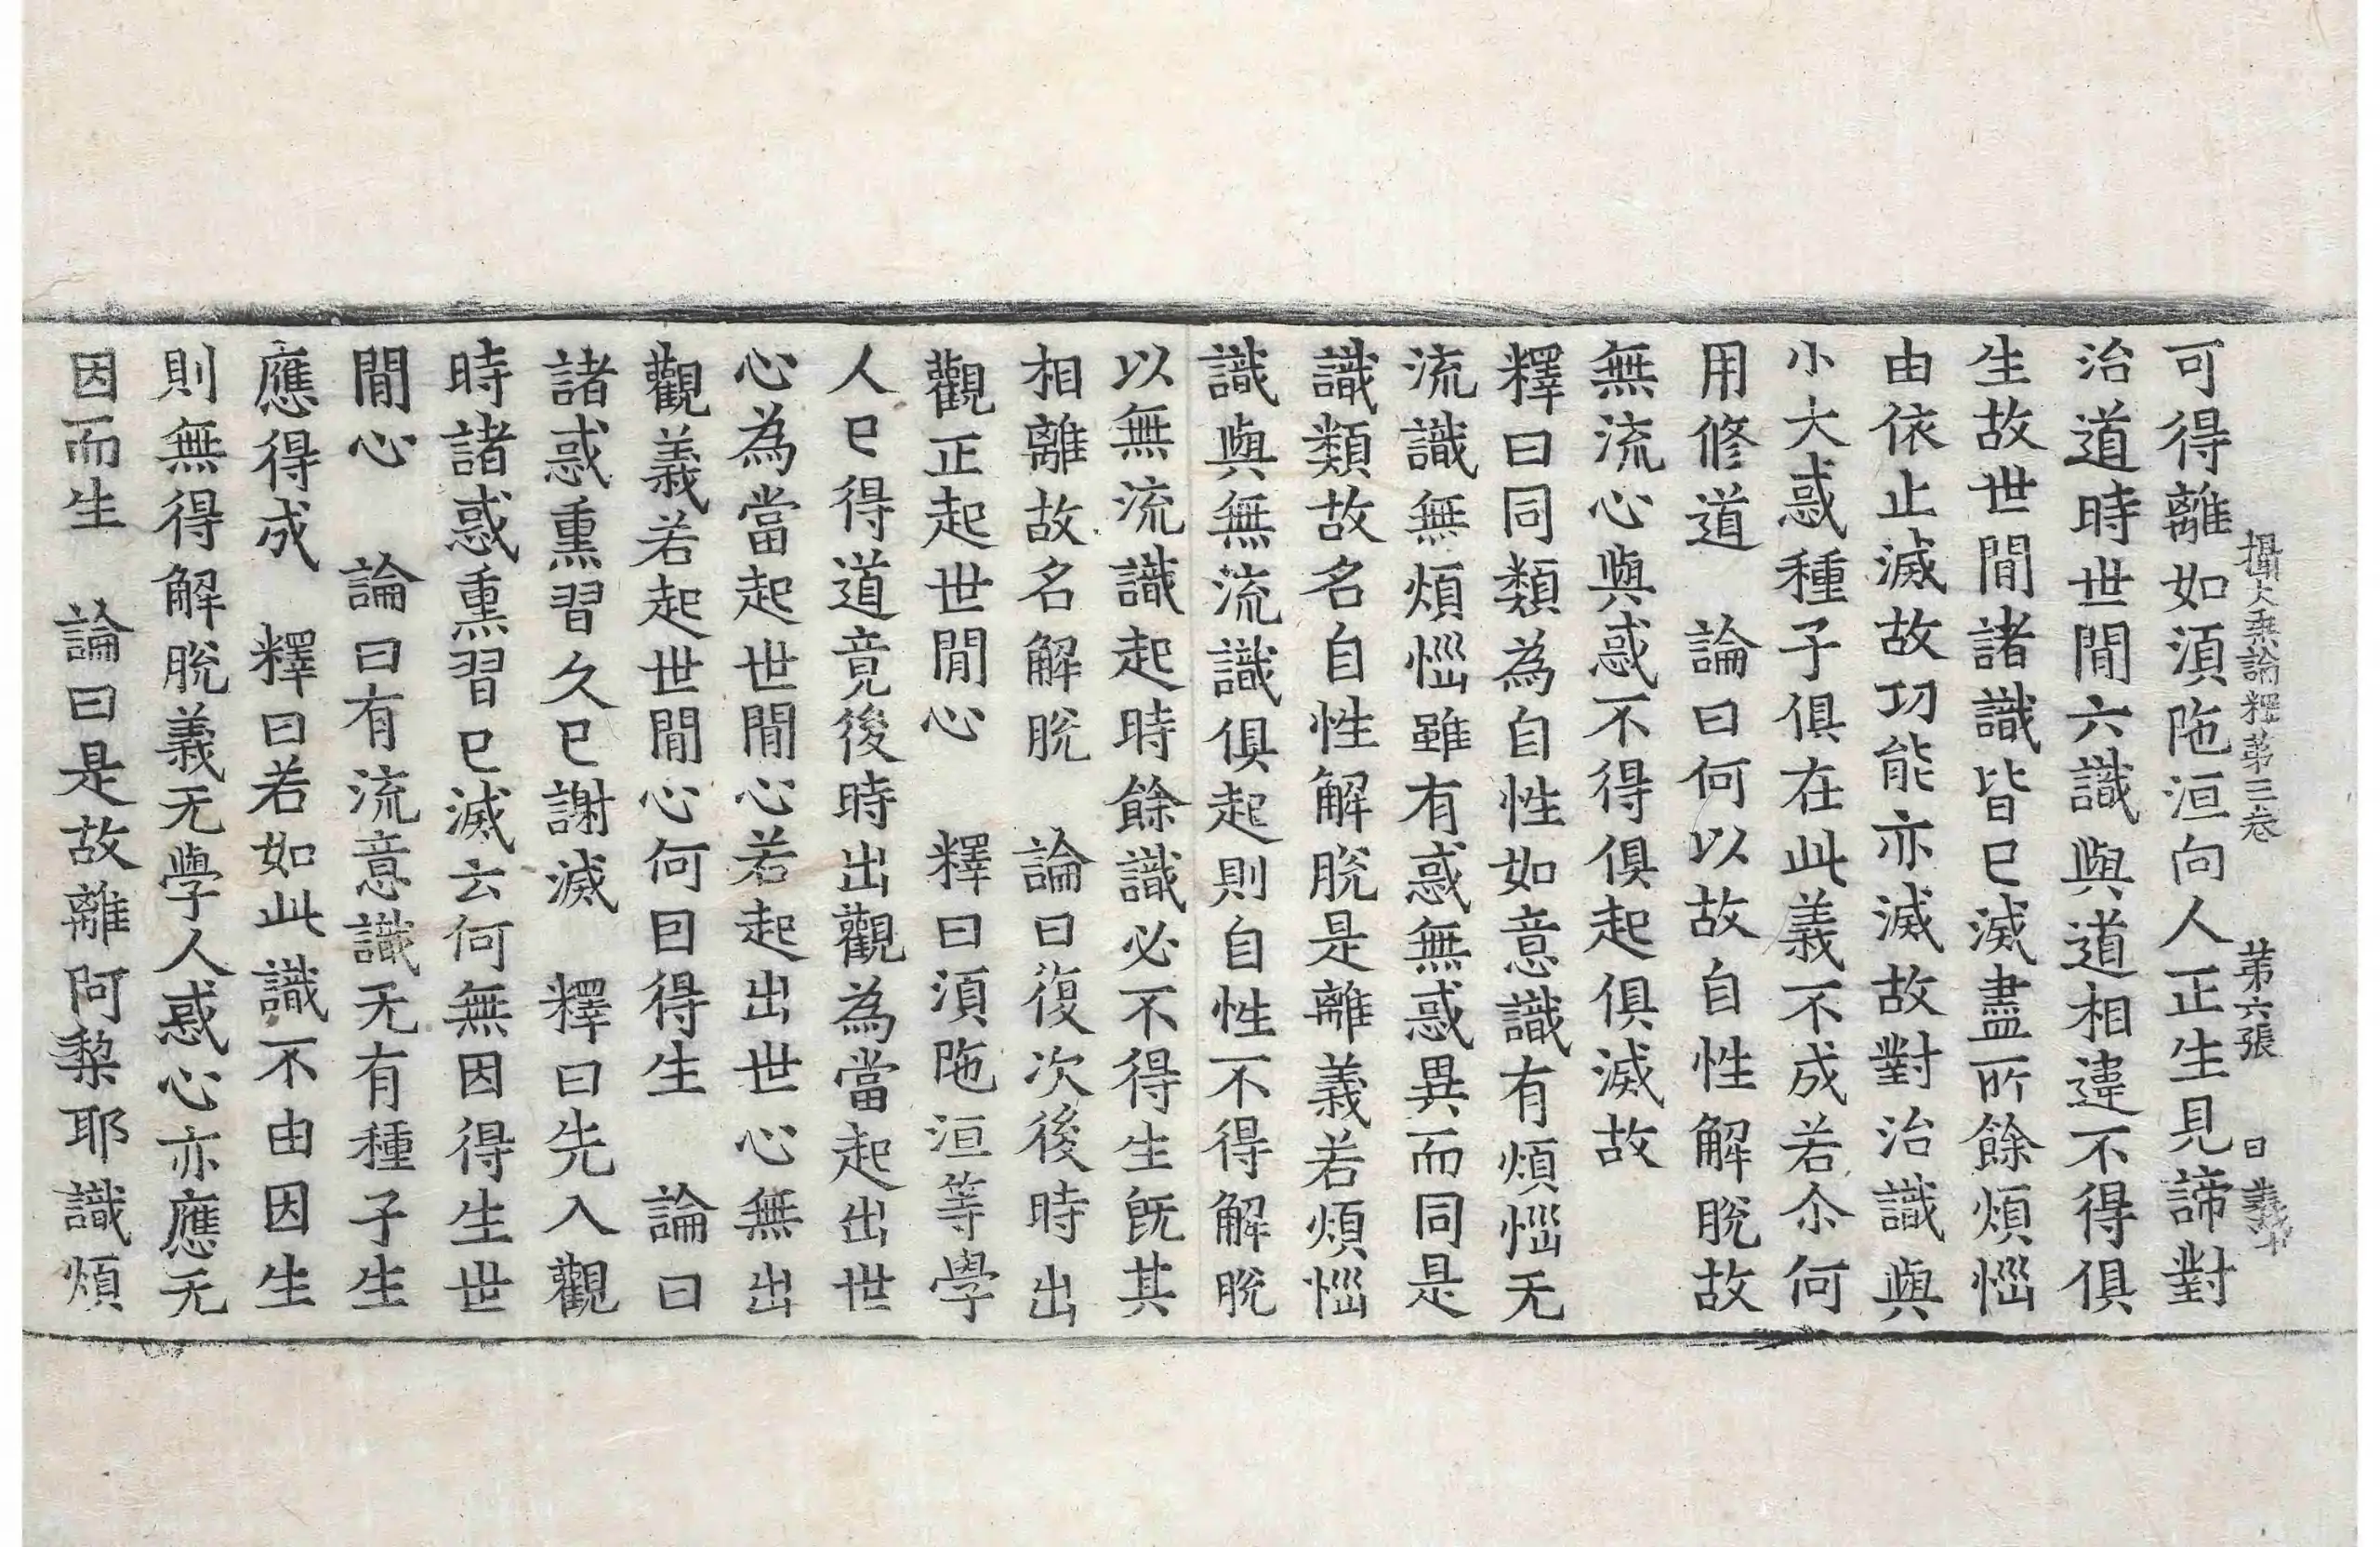 攝大乗論釋第三卷　第六張　曰　義
可得離如湏陁洹向人正生見諦對
治道時世間六識與道相違不得俱
生故世間諸識皆已滅盡所餘煩惱
由依止滅故功能亦滅故對治識與
小大惑種子俱在此義不成若尒何
用修道　論曰何以故自性解脫故
無流心與惑不得俱起俱滅故
釋曰同類為自性如意識有煩惱无
流識無煩惱雖有惑無惑異而同是
識類故名自性解脫是離義若煩惱
識與無流識俱起則自性不得解脫
以無流識起時餘識必不得生旣其
相離故名解脫　論曰復次後時出
觀正起世間心　釋曰湏陁洹等學
人已得道竟後時出觀為當起出世
心為當起世間心若起出世心無出
觀義若起世間心何囙得生　論曰
諸惑熏習久已謝滅　釋曰先入觀
時諸惑熏習已滅云何無因得生世
間心　論曰有流意識无有種子生
應得成　釋曰若如此識不由因生
則無得解脫義无學人惑心亦應无
因而生　論曰是故離阿棃耶識煩